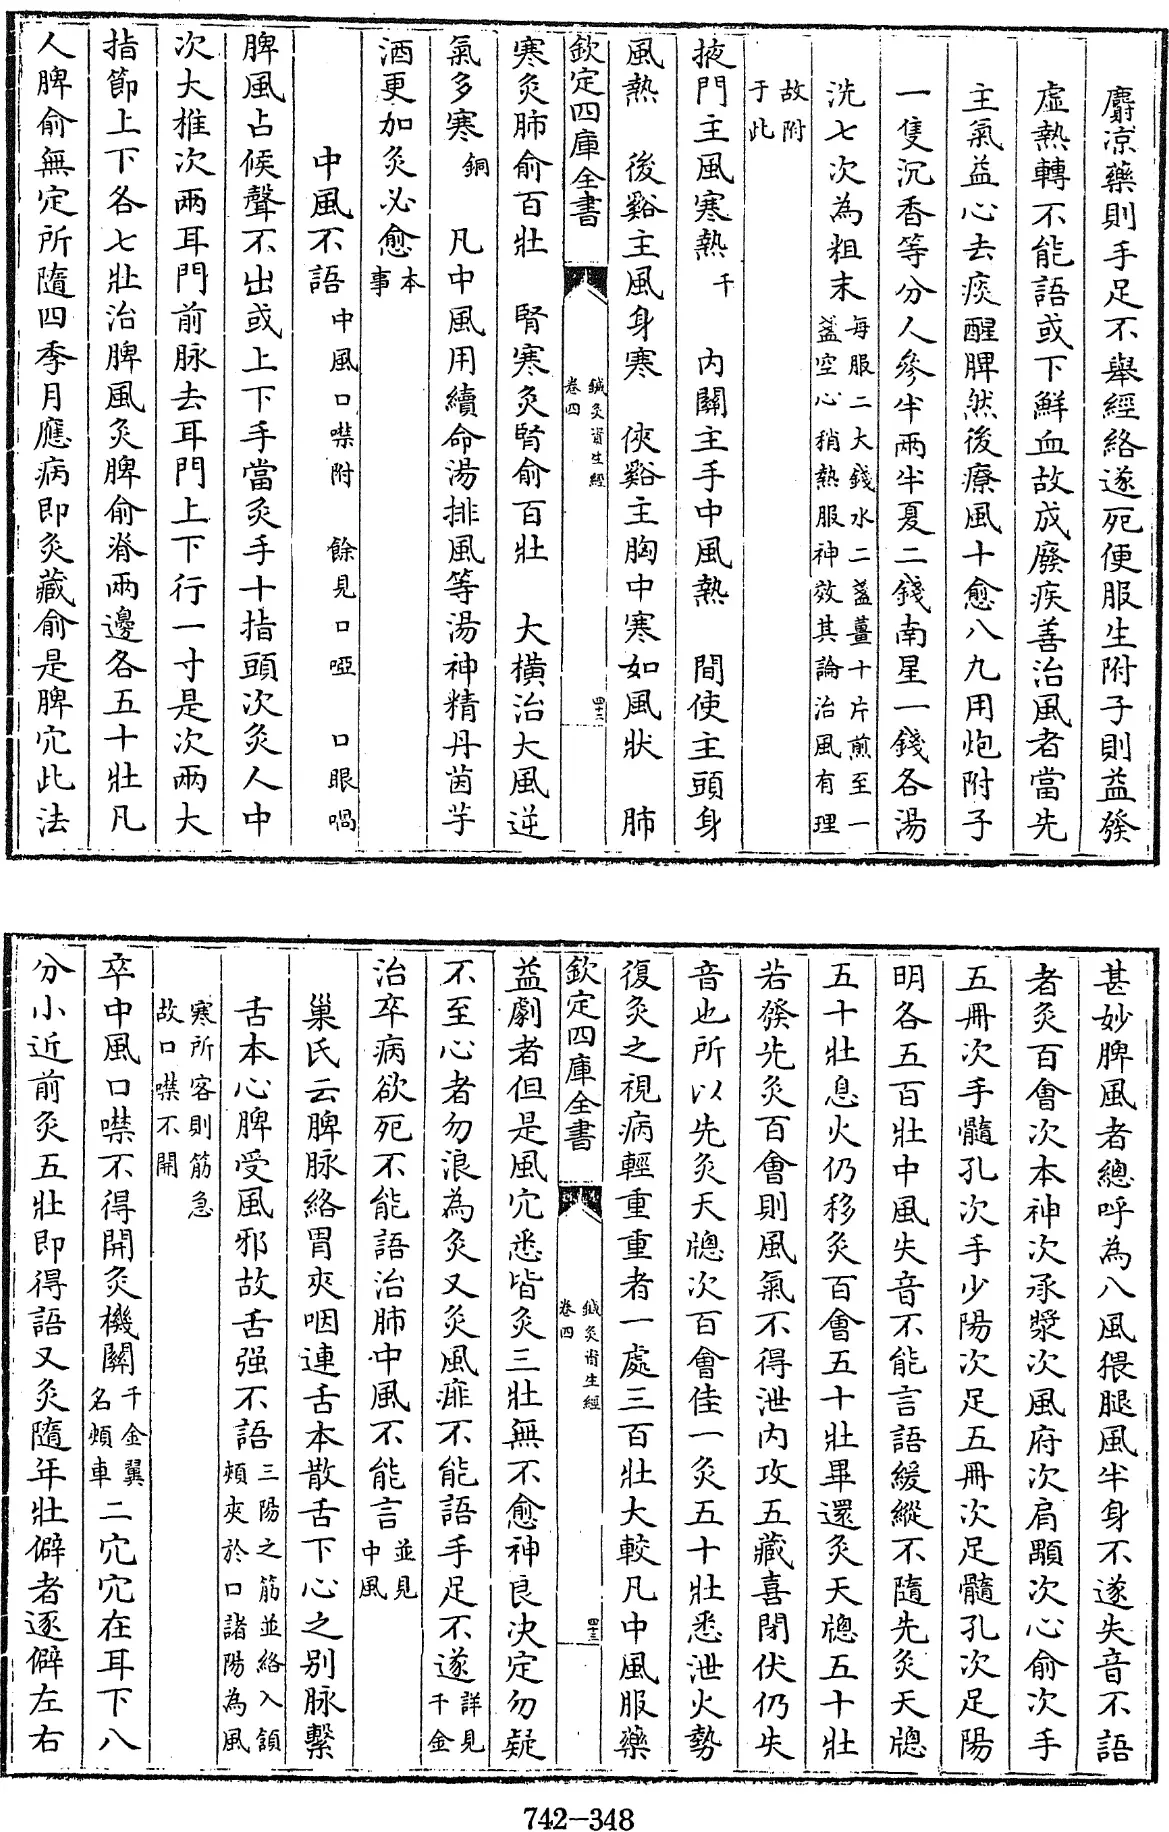 麝凉藥則手足不舉經絡遂死便服生附子則益發
虛熱轉不能語或下鮮血故成廢疾善治風者當先
主氣益心去痰醒脾然後療風十愈八九用炮附子
一隻沉香等分人參半兩半夏二錢南星一錢各湯
洗七次為粗末每服二大錢水二盞薑十片煎至一盞空心稍熱服神效其論治風有理
故附于此
掖門主風寒熱千 内關主手中風熱 間使主頭身
風熱 後谿主風身寒 俠谿主胸中寒如風狀 肺
欽定四庫全書 鍼灸資生經 卷四 四十二
寒灸肺俞百壯 腎寒灸腎俞百壯 大橫治大風逆
氣多寒銅 凡中風用續命湯排風等湯神精丹茵芋
酒更加灸必愈本事
中風不語 中風口噤附 餘見口啞 口眼喎
脾風占候聲不出或上下手當灸手十指頭次灸人中
次大椎次兩耳門前脉去耳門上下行一寸是次兩大
指節上下各七壯治脾風灸脾俞脊兩邊各五十壯凡
人脾俞無定所隨四季月應病即灸藏俞是脾穴此法
甚妙脾風者總呼為八風猥腿風半身不遂失音不語
者灸百會次本神次承漿次風府次肩顒次心俞次手
五冊次手髓孔次手少陽次足五冊次足髓孔次足陽
明各五百壯中風失音不能言語緩縱不隨先灸天牕
五十壯息火仍移灸百會五十壯畢還灸天牕五十壯
若發先灸百會則風氣不得泄内攻五藏喜閉伏仍失
音也所以先灸天牕次百會佳一灸五十壯悉泄火勢
復灸之視病輕重重者一處三百壯大較凡中風服藥
欽定四庫全書 鍼灸資生經 卷四 四十三
益劇者但是風穴悉皆灸三壯無不愈神良決定勿疑
不至心者勿浪為灸又灸風痱不能語手足不遂詳見千金
治卒病欲死不能語治肺中風不能言並見中風
巢氏云脾脉絡胃夾咽連舌本散舌下心之别脉繫
舌本心脾受風邪故舌强不語三陽之筋並絡入頷頰夾於口諸陽為風
寒所客則筋急故口噤不開
卒中風口噤不得開灸機關千金翼名頰車二穴穴在耳下八
分小近前灸五壯即得語又灸隨年壯僻者逐僻左右
742-348